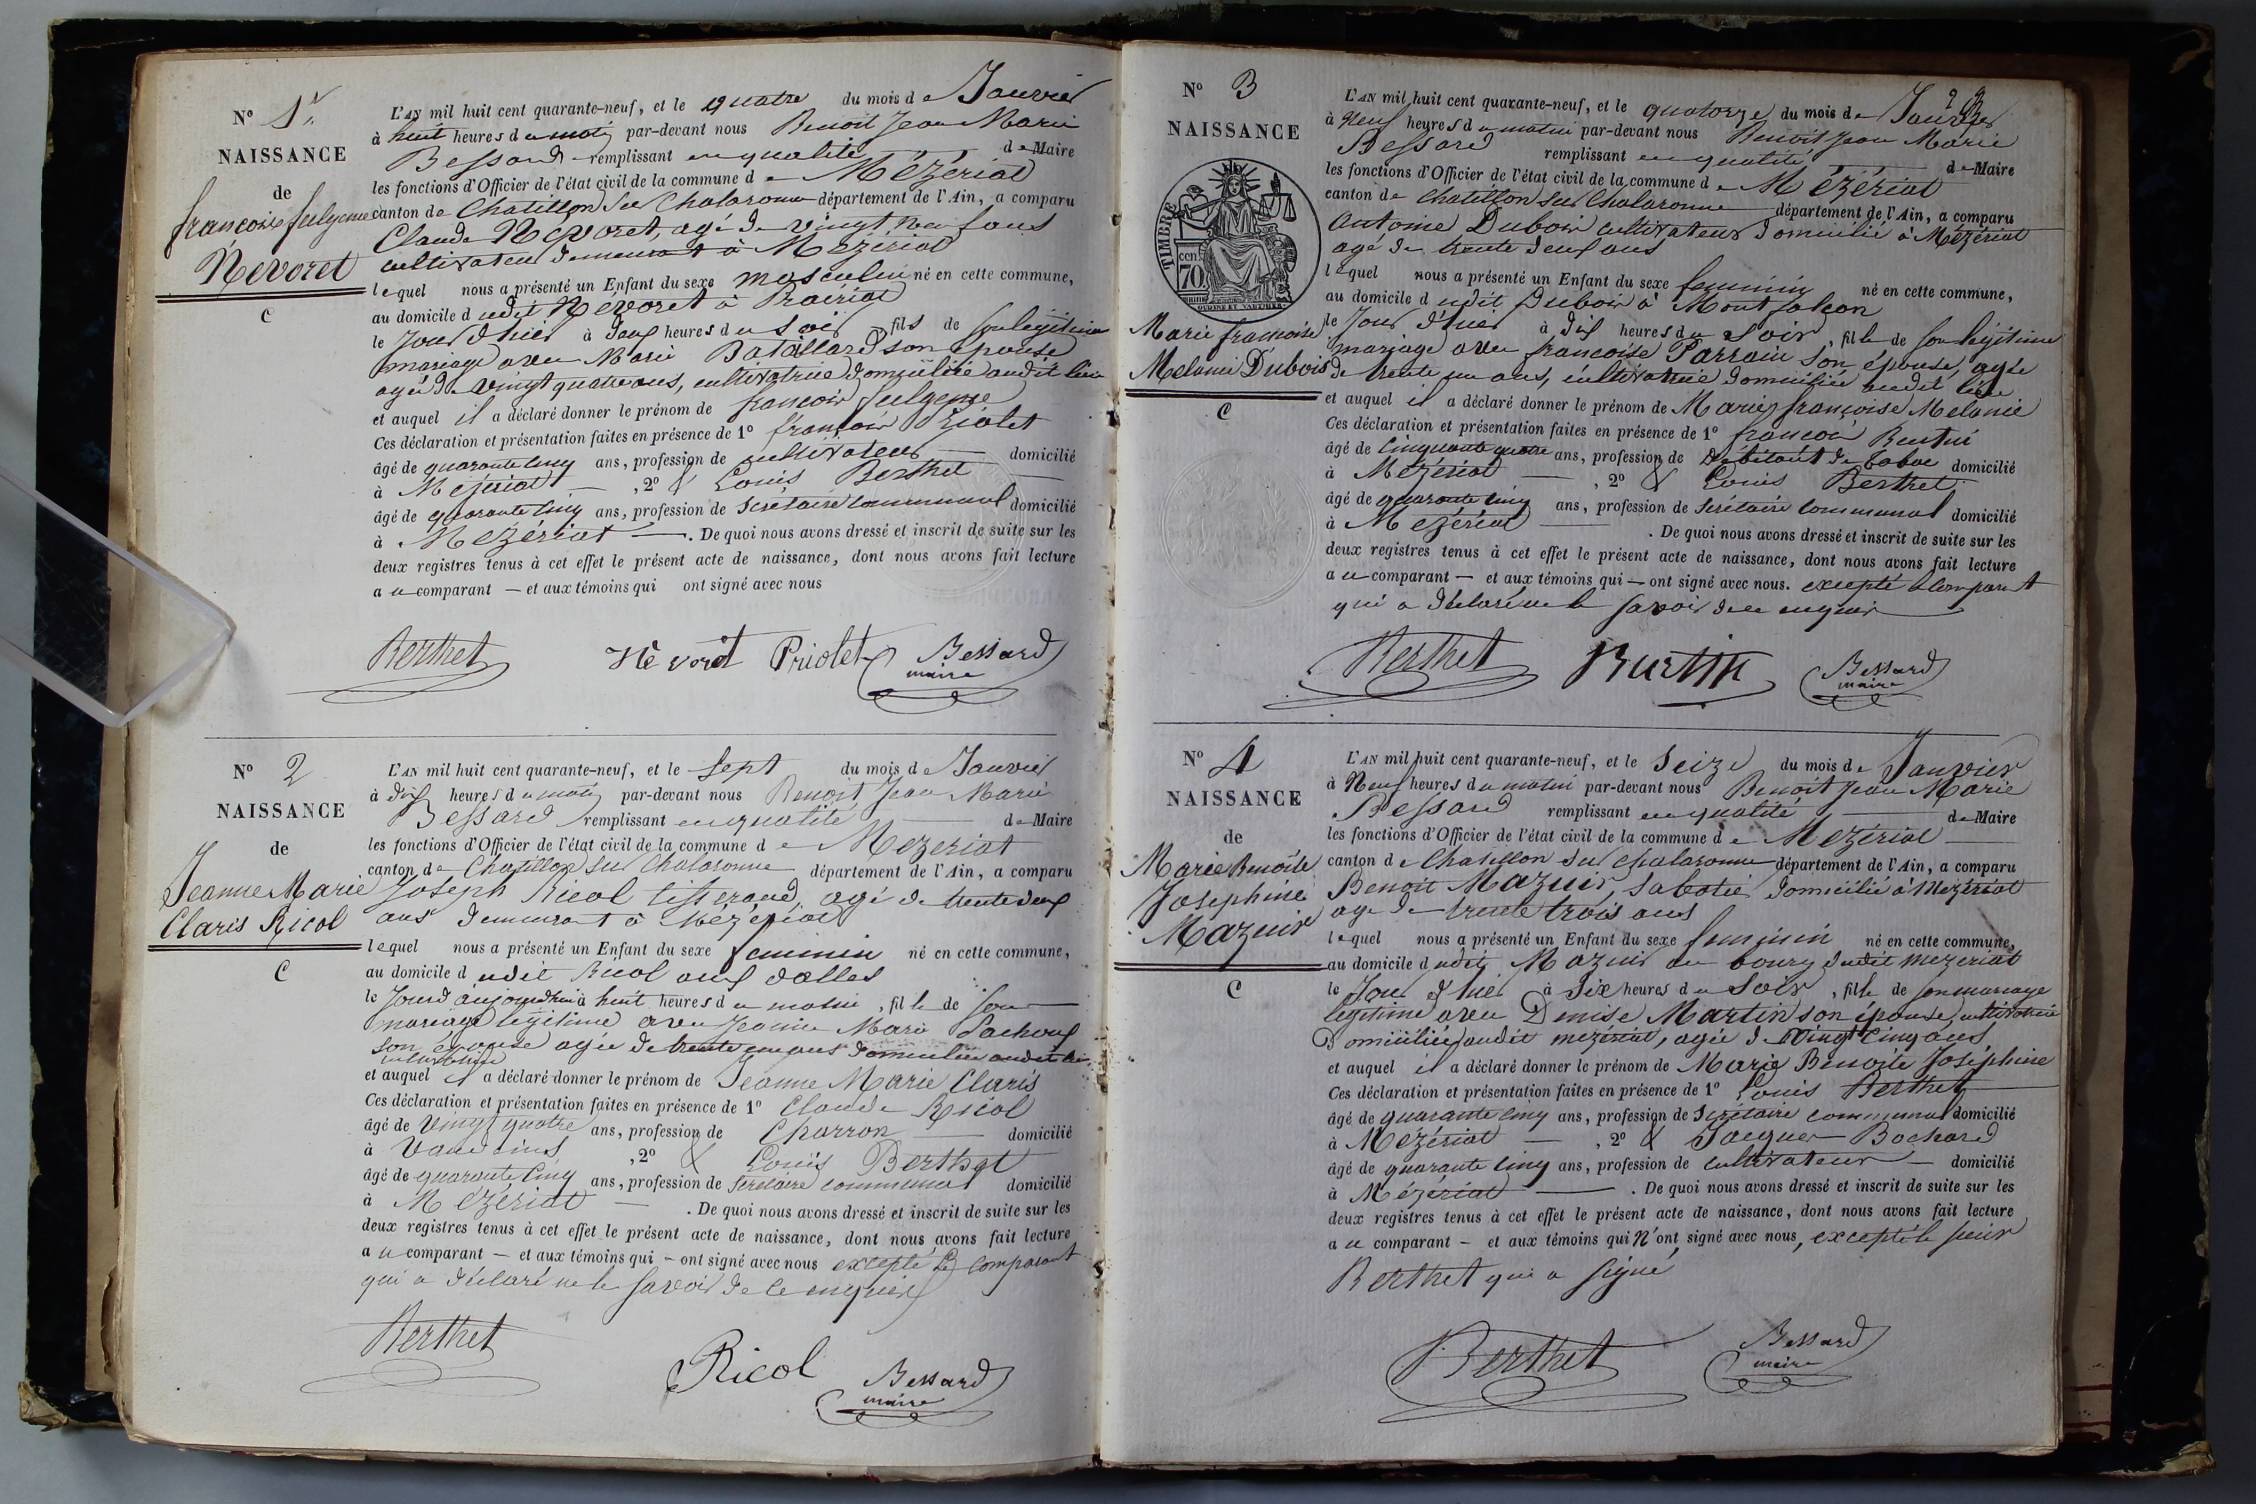 N° 1er
NAISSANCE
de
françois fulgence
Nevoret
C
L'AN mil huit cent quarante-neuf, et le quatre du mois de Janvier
à huit heures du matin par-devant nous Benoit Jean Marie
Bessard remplissant en qualité de Maire
les fonctions d'Officier de l'état civil de la commune de Mézériat
canton de Chatillon sur Chalaronne département de l'Ain, a comparu
Claude Nevoret, agé de vingt neuf ans
cultivateur demeurant à Mézériat
lequel nous a présenté un Enfant du sexe masculin né en cette commune,
au domicile dudit Nevoret à
le Jour d'hier à deux heures du soir fils de son légitime
mariage avec Marie Batallard son épouse
agée de vingt quatre ans, cultivatrice domiciliée audit lieu
et auquel il a déclaré donner le prénom de françois fulgence
Ces déclaration et présentation faites en présence de 1° françois Priolet
âgé de quarante cinq ans, profession de cultivateur domicilié
à Mézériat , 2° & Louis Berthet
âgé de quarante cinq ans, profession de secrétaire communal domicilié
à Mézériat . De quoi nous avons dressé et inscrit de suite sur les
deux registres tenus à cet effet le présent acte de naissance, dont nous avons fait lecture
au comparant — et aux témoins qui ont signé avec nous
Berthet Névoret Priolet Bessard
maire
N° 2
NAISSANCE
de
Jeanne Marie
Claris Ricol
C
L'AN mil huit cent quarante-neuf, et le sept du mois de Janvier
à dix heures du matin par-devant nous Benoit Jean Marie
Bessard remplissant en qualité de Maire
les fonctions d'Officier de l'état civil de la commune de Mézériat
canton de Chatillon sur Chalaronne département de l'Ain, a comparu
Joseph Ricol tisserand, agé de trente deux
ans demeurant à Mézériat
lequel nous a présenté un Enfant du sexe feminin né en cette commune,
au domicile dudit Ricol aux
le Jour d'aujourd'hui à huit heures du matin , fille de son
mariage légitime avec Jeanne Marie
son épouse agée de trente ans domiciliée audit lieu
cultivatrice
et auquel il a déclaré donner le prénom de Jeanne Marie Claris
Ces déclaration et présentation faites en présence de 1° Claude Ricol
âgé de vingt quatre ans, profession de Charron domicilié
à Vandeins , 2° & Louis Berthet
âgé de quarante cinq ans, profession de secretaire communal domicilié
à Mézériat . De quoi nous avons dressé et inscrit de suite sur les
deux registres tenus à cet effet le présent acte de naissance, dont nous avons fait lecture
au comparant — et aux témoins qui — ont signé avec nous excepté le comparant
qui a déclaré ne le savoir de ce enquis
Berthet Ricol Bessard
maire
N° 3
NAISSANCE
TIMBRE
cen.
70
Marie françoise
Melanie Dubois
C
L'AN mil huit cent quarante-neuf, et le quatorze du mois de Janvier
à Neuf heures du matin par-devant nous Benoit Jean Marie
Bessard remplissant en qualité de Maire
les fonctions d'Officier de l'état civil de la commune de Mézériat
canton de Chatillon sur Chalaronne département de l'Ain, a comparu
Antoine Dubois cultivateur domicilié à Mézériat
agé de trente deux ans
lequel nous a présenté un Enfant du sexe feminin né en cette commune,
au domicile dudit Dubois à Montfalcon
le Jour d'hier à dix heures du soir , fille de son légitime
mariage avec françoise Parrain son épouse, agée
de trente un ans, cultivatrice domiciliée audit lieu
et auquel il a déclaré donner le prénom de Marie françoise Melanie
Ces déclaration et présentation faites en présence de 1° françois Burtin
âgé de cinquante quatre ans, profession de Débitant de tabac domicilié
à Mézériat , 2° & Louis Berthet
âgé de quarante cinq ans, profession de secrétaire communal domicilié
à Mézériat . De quoi nous avons dressé et inscrit de suite sur les
deux registres tenus à cet effet le présent acte de naissance, dont nous avons fait lecture
au comparant — et aux témoins qui — ont signé avec nous. excepté le comparant
qui a déclaré ne le savoir de ce enquis
Berthet Burtin Bessard
maire
N° 4
NAISSANCE
de
Marie Benoite
Josephine
Mazuir
C
L'AN mil huit cent quarante-neuf, et le Seize du mois de Janvier
à Neuf heures du matin par-devant nous Benoit Jean Marie
Bessard remplissant en qualité de Maire
les fonctions d'Officier de l'état civil de la commune de Mézériat
canton de Chatillon sur Chalaronne département de l'Ain, a comparu
Benoit Mazuir, sabotié domicilié à Mézériat
age de trente trois ans
lequel nous a présenté un Enfant du sexe feminin né en cette commune,
au domicile dudit Mazuir au bourg dudit mezeriat
le Jour d'hier à Six heures du Soir , fille de son mariage
legitime avec Denise Martin son épouse, cultivatrice
Domiciliée audit mezériat, agée de vingt cinq ans
et auquel il a déclaré donner le prénom de Marie Benoite Joséphine
Ces déclaration et présentation faites en présence de 1° Louis Berthet
âgé de quarante cinq ans, profession de Secrétaire communal domicilié
à Mézériat , 2° & Jacques Bochard
âgé de quarante cinq ans, profession de cultivateur domicilié
à Mézériat . De quoi nous avons dressé et inscrit de suite sur les
deux registres tenus à cet effet le présent acte de naissance, dont nous avons fait lecture
au comparant — et aux témoins qui N'ont signé avec nous, excepté le sieur
Berthet qui a signé
Berthet Bessard
maire